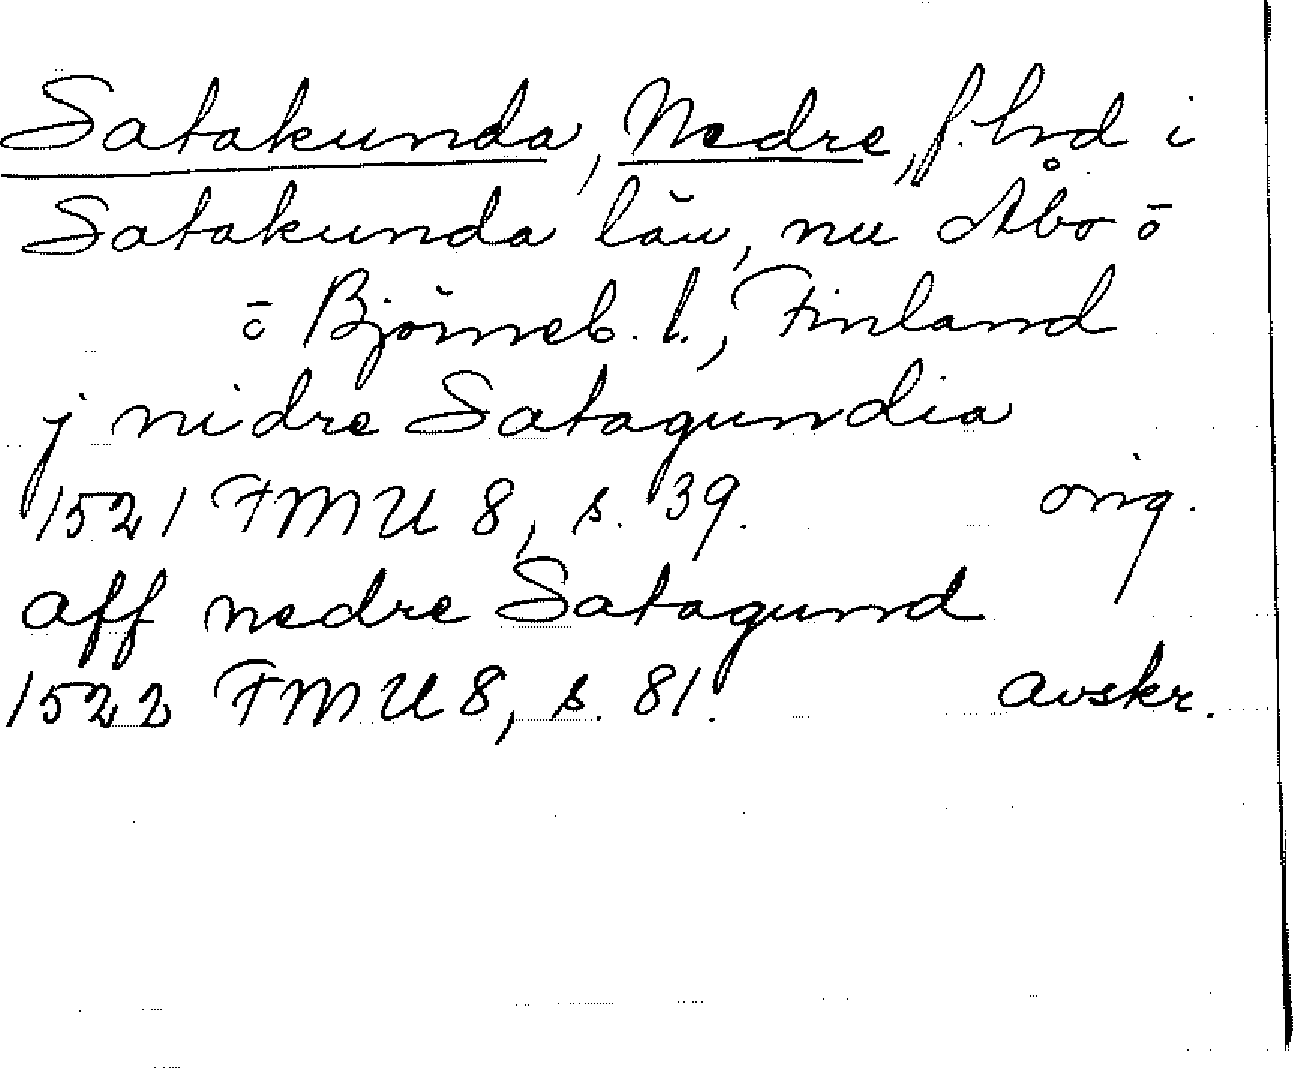 Satakunda, Nedre, f. hd i
Satakunda län, nu Åbo o
o Björneb. l., Finland
j nidre Satagundia
1521 FMU 8, s. 39. orig.
aff nedre Satagund
1522 FMU 8, s. 81. avskr.